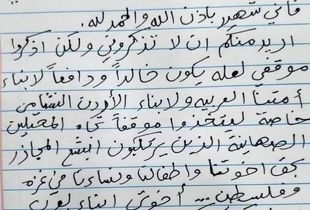 فأني شهيد بأذن الله والحمد لله.
اريد منكم ان لا تذكروني ولكن اذكروا
موقفي لعله يكون خالداً ودافعاً لابناء
أمتنا العربيه ولابناء الأردن النشامى
خاصة ليتخذوا موقفاً تجاه المحتلين
الصهاينة الذين يرتكبون ابشع المجازر
بحق اخوتنا واطفالنا ونساءنا في غزه
وفلسطين ... أخوتي ابناء